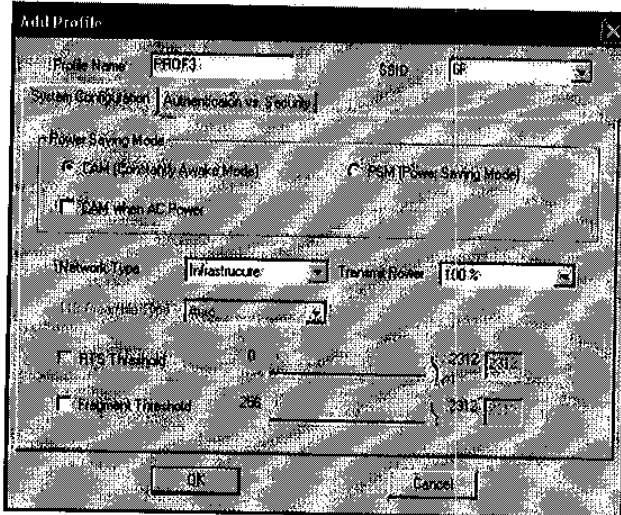 Add Profile
Profile Name PROF3 SSID
System Configuration Authentication vs. Security
Power Saving Mode
CAM (Constantly Awake Mode) PSM (Power Saving Mode)
CAM When AC Power
Network Type Infrastrucure Transmit Power 100 %
Auto
RTS Threshold 0 2312 2312
Fragment Threshold 256 2312
OK Cancel